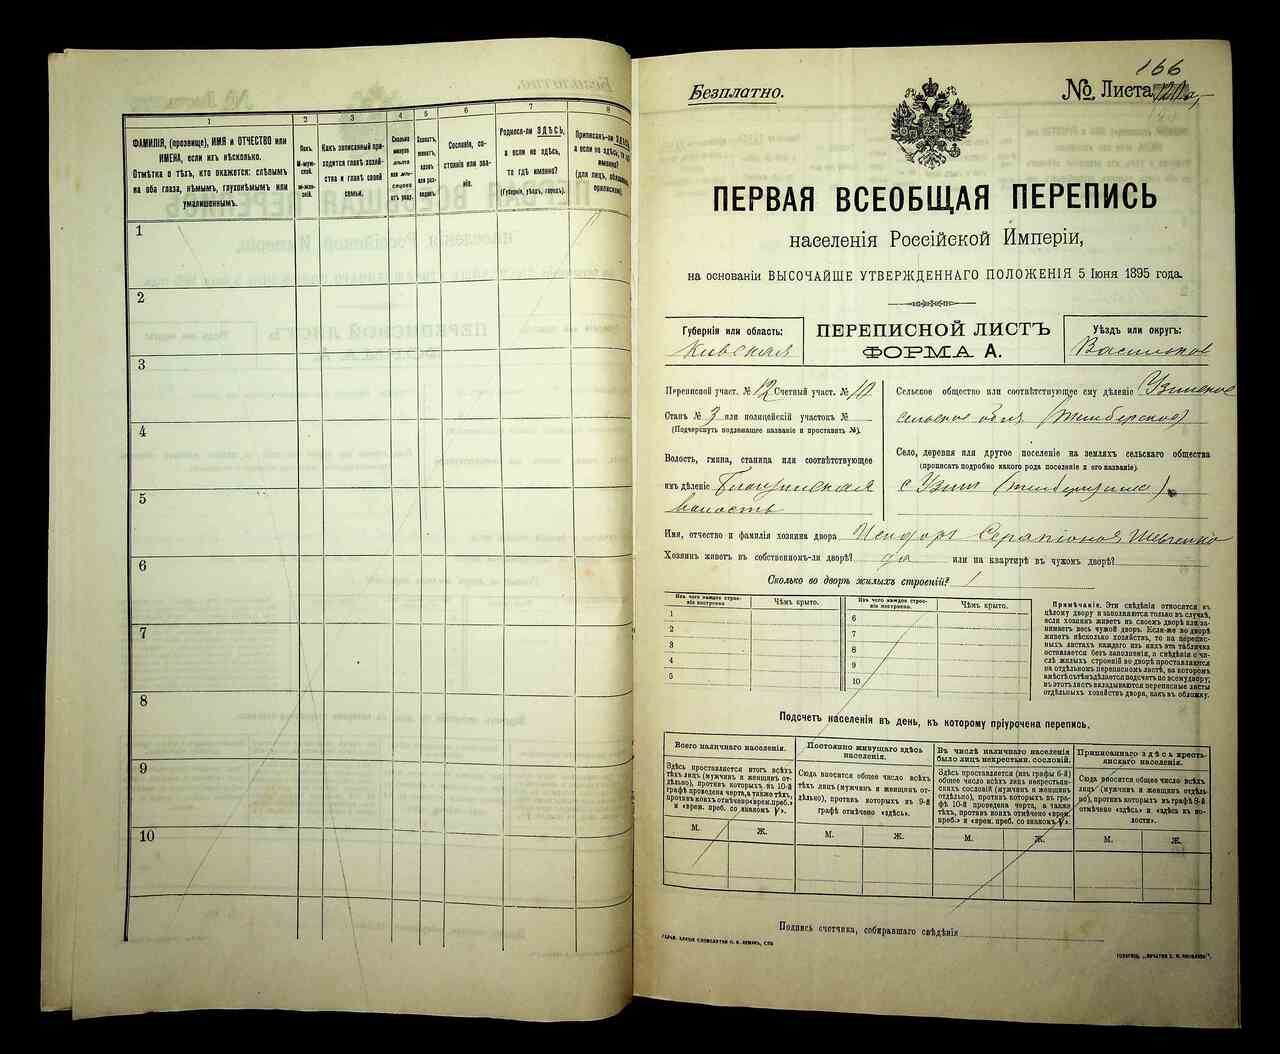 1
2
3
4
5
6
7
8
ФАМИЛІЯ, (прозвище), ИМЯ и ОТЧЕСТВО или
ИМЕНА, если ихъ нѣсколько.
Отмѣтка о тѣхъ, кто окажется: слѣпымъ
на оба глаза, нѣмымъ, глухонѣмымъ или
умалишеннымъ.
Полъ.
М-муж-
ской.
ж-жен-
скій.
Какъ записанный при-
ходится главѣ хозяй-
ства и главѣ своей
семьи.
Сколько
минуло
лѣтъ
или мѣ-
сяцевъ
отъ роду.
Холостъ,
женатъ,
вдовъ
или раз-
веденъ.
Сословіе, со-
стояніе или зва-
ніе.
Родился-ли ЗДѢСЬ,
а если не здѣсь,
то гдѣ именно?
(Губернія, уѣздъ, городъ).
Приписанъ-ли
а если не здѣсь,
именно?
(для лицъ,
1
2
3
4
5
6
7
8
9
10
166
Безплатно.
№ Листа
ПЕРВАЯ ВСЕОБЩАЯ ПЕРЕПИСЬ
населенія Россійской Имперіи,
на основаніи ВЫСОЧАЙШЕ УТВЕРЖДЕННАГО ПОЛОЖЕНІЯ 5 Іюня 1895 года.
Губернія или область:
Кіевская
ПЕРЕПИСНОЙ ЛИСТЪ
ФОРМА А.
Уѣздъ или округъ:
Васильков
Переписной участ. № 12 Счетный участ. № 10
Станъ № 3 или полицейскій участокъ №
(Подчеркнуть подлежащее названіе и проставить №).
Волость, гмина, станица или соотвѣтствующее
имъ дѣленіе
волость
Сельское общество или соотвѣтствующее ему дѣленіе Узинское
сельское
Село, деревня или другое поселеніе на земляхъ сельскаго общества
(прописать подробно какого рода поселеніе и его названіе).
с Узин
Имя, отчество и фамилія хозяина двора Исидоръ Серапіоновъ Шевченко
Хозяинъ живетъ въ собственномъ-ли дворѣ? да или на квартирѣ въ чужомъ дворѣ?
Сколько во дворѣ жилыхъ строеній? 1
Изъ чего каждое строе-
ніе построено
Чѣмъ крыто.
Изъ чего каждое строе-
ніе построено
Чѣмъ крыто.
1
2
3
4
5
6
7
8
9
10
Примѣчаніе. Эти свѣдѣнія относятся къ
цѣлому двору и заполняются только въ случаѣ,
если хозяинъ живетъ въ своемъ дворѣ или за-
нимаетъ весь чужой дворъ. Если-же во дворѣ
живетъ нѣсколько хозяйствъ, то на перепис-
ныхъ листахъ каждаго изъ нихъ эта табличка
оставляется безъ заполненія, а свѣдѣнія о чи-
слѣ жилыхъ строеній во дворѣ проставляются
на отдѣльномъ переписномъ листѣ, на которомъ
вмѣстѣ съ тѣмъ дѣлается подсчетъ по всему двору;
въ этотъ листъ вкладываются переписные листы
отдѣльныхъ хозяйствъ двора, какъ въ обложку.
Подсчетъ населенія въ день, къ которому пріурочена перепись.
Всего наличнаго населенія.
Здѣсь проставляется итогъ всѣхъ
тѣхъ лицъ (мужчинъ и женщинъ от-
дѣльно), противъ которыхъ въ 10-й
графѣ проведена черта, а также тѣхъ,
противъ коихъ отмѣчено «врем. преб.»
и «врем. преб. со знакомъ V».
Постоянно живущаго здѣсь
населенія.
Сюда вносится общее число всѣхъ
тѣхъ лицъ (мужчинъ и женщинъ от-
дѣльно), противъ которыхъ въ 9-й
графѣ отмѣчено «здѣсь».
Въ числѣ наличнаго населенія
было лицъ некрестьян. сословій.
Здѣсь проставляется (изъ графы 6-й)
общее число всѣхъ лицъ некрестьян-
скихъ сословій (мужчинъ и женщинъ
отдѣльно), противъ которыхъ въ гра-
фѣ 10-й проведена черта, а также
тѣхъ, противъ коихъ отмѣчено «врем.
преб.» и «врем. преб. со знакомъ V».
Приписаннаго здѣсь кресть-
янскаго населенія.
Сюда вносится общее число всѣхъ
лицъ (мужчинъ и женщинъ отдѣль-
но), противъ которыхъ въ графѣ 8-й
отмѣчено «здѣсь» и «здѣсь въ во-
лости».
М.
Ж.
М.
Ж.
М.
Ж.
М.
Ж.
Подпись счетчика, собиравшаго свѣдѣнія